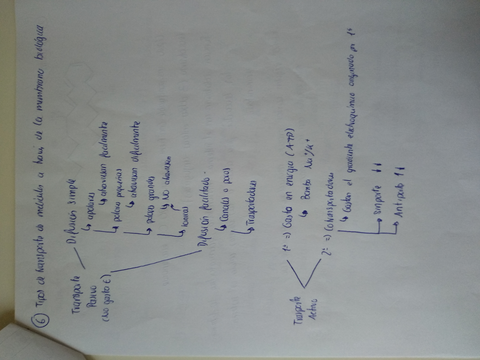 ⑥ Tipos de transporte de molécula a travé de la membrana biológica
Transporte
Pasivo
(No gasto E)
Difusión simple
↳ apolares
↳ atraviesan facilmente
↳ polares pequeñas
↳ atraviesan dificilmente
↳ polar grandes
↳ No atraviesa
↳ iones
Difusión facilitada
↳ Canales o poros
↳ Transportadores
Trasporte
Activo
1º => Gasta en energía (ATP)
↳ Bomba Na⁺/K⁺
2º => Cotransportadores
↳ Gasta el gradiente electroquímico originado por 1º
↳ Simporte ↓↓
↳ Antiporte ↑↓